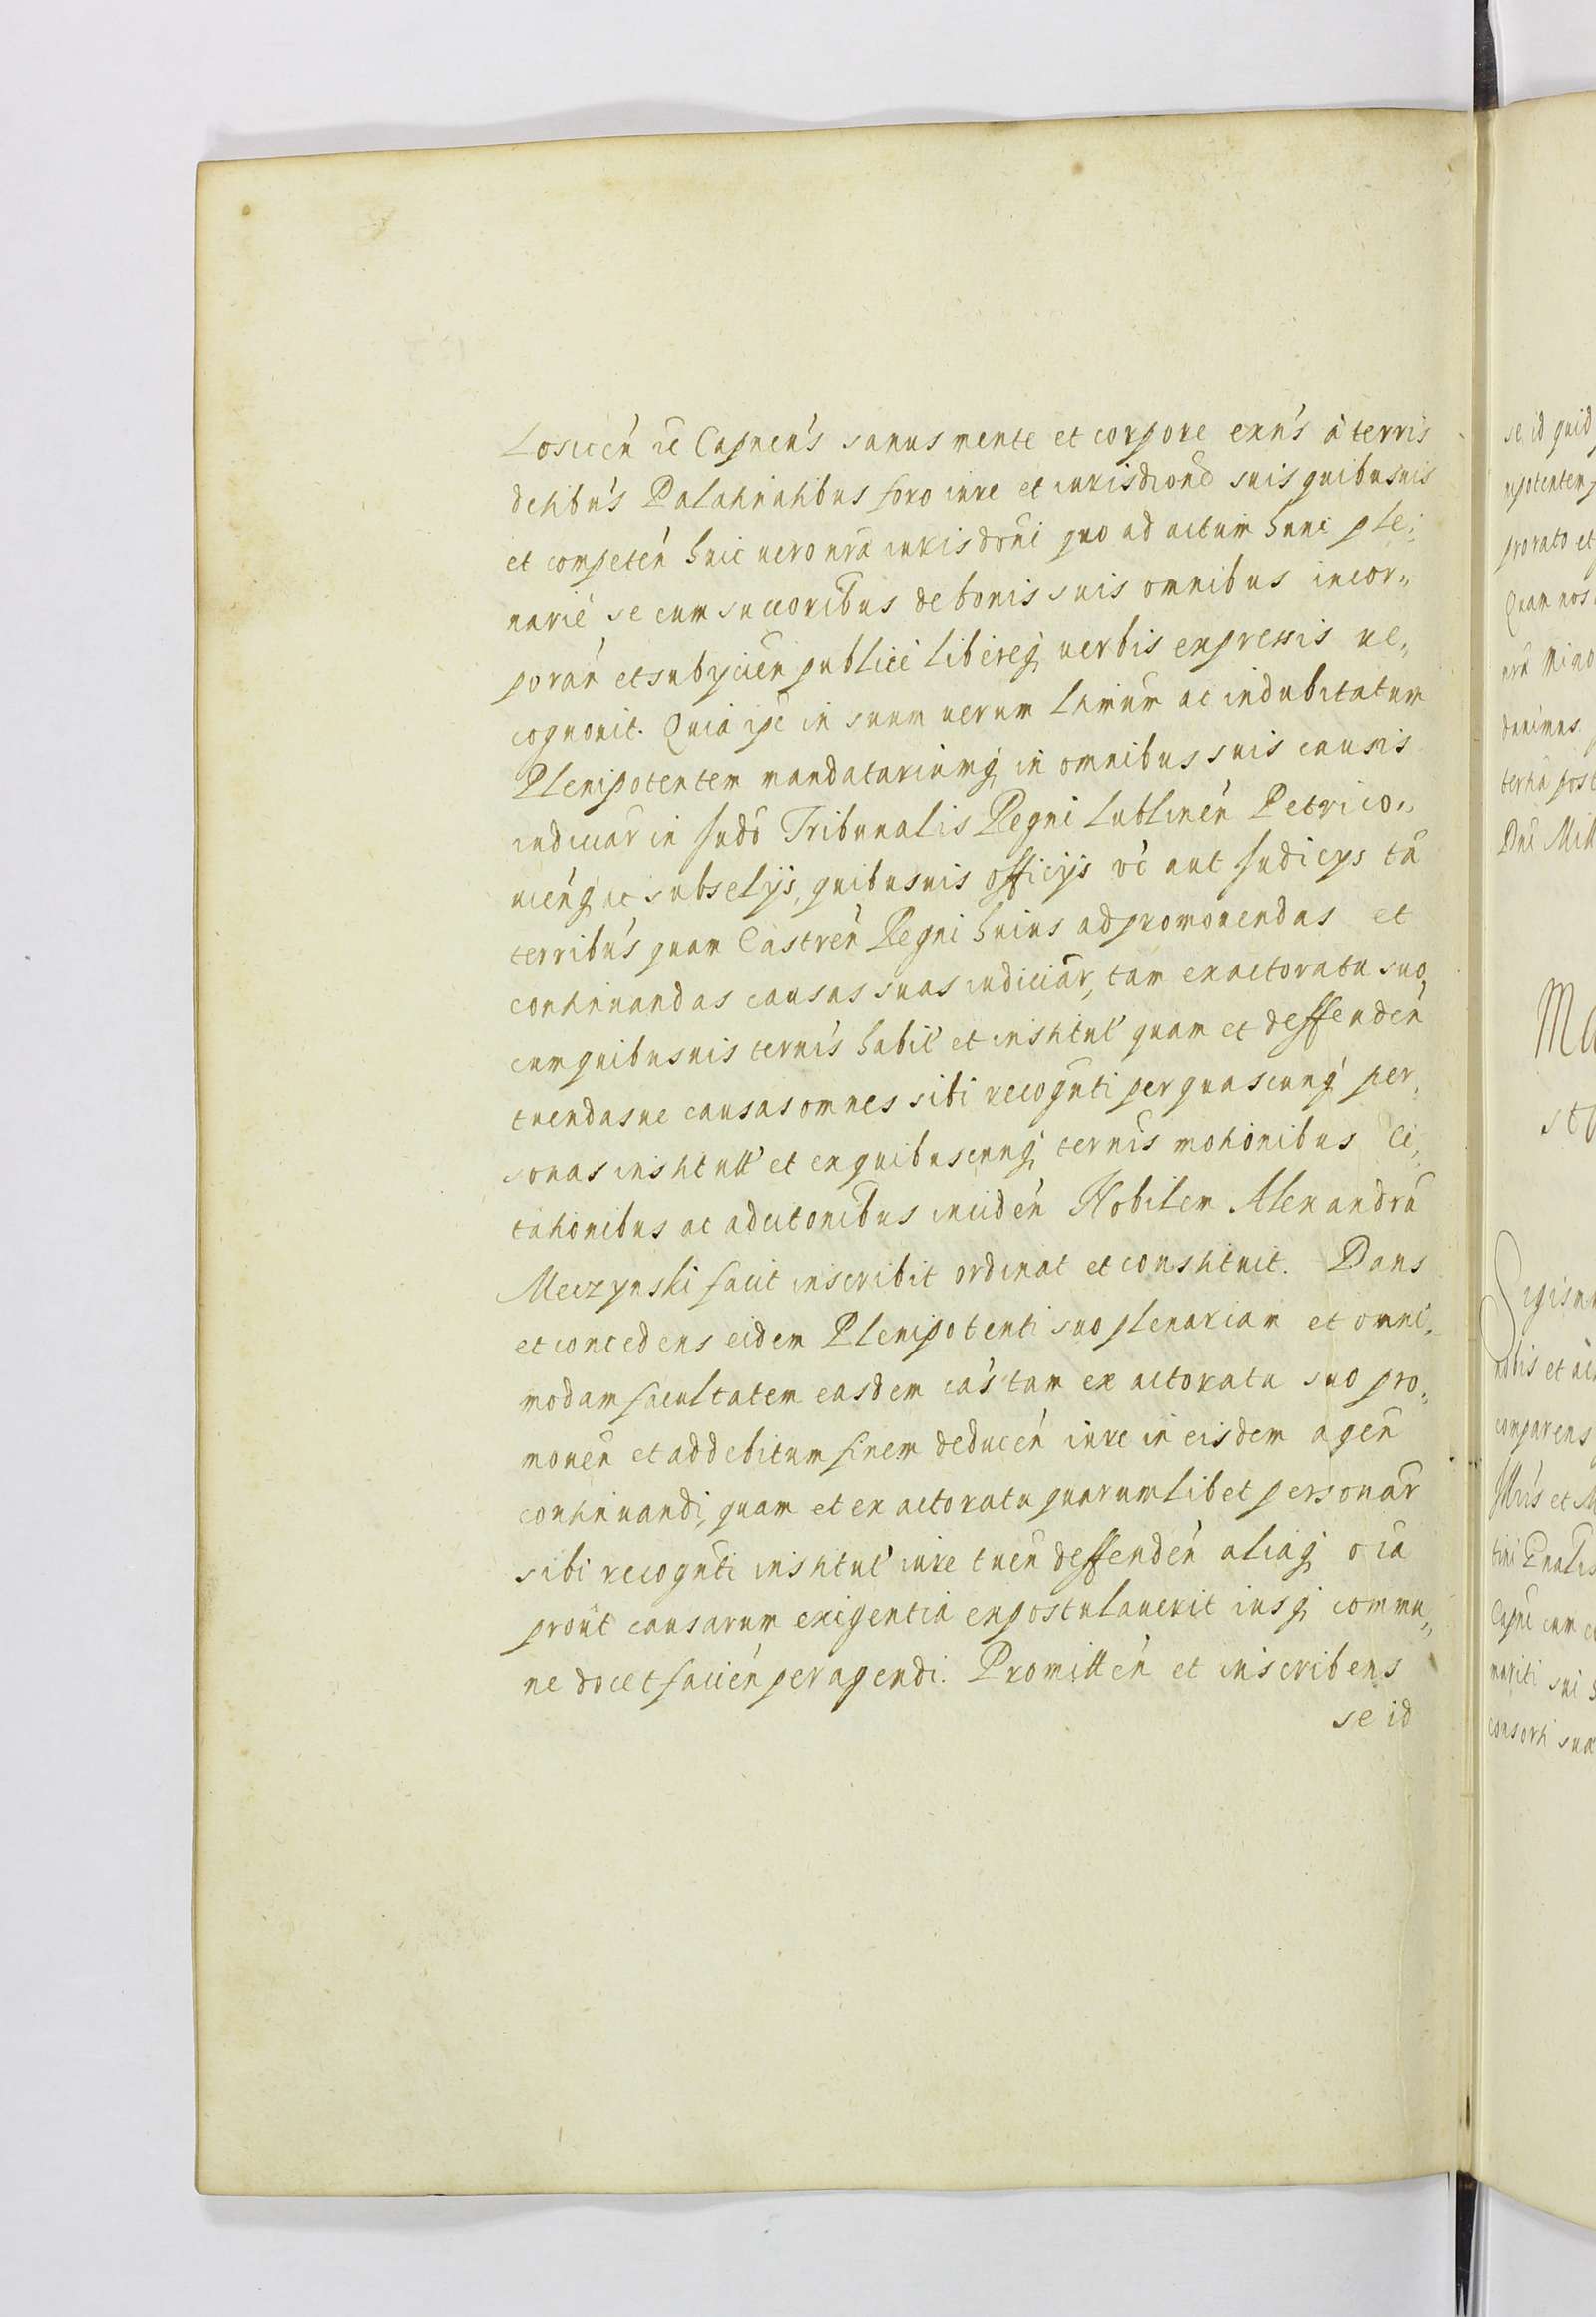 Losicen̄ ac Capnen̄s sanus mente et corpore exn̄s à terris
dehibus Palatinatibus foro iure et iurisdione suis quibusuis
et competen̄ huic uero nrã iurisdoni quo ad actum hunc ple,
narie se cum succoribus de bonis suis omnibus incor,,
poran̄ et subycien̄ publice libereq; uerbis expressis re,
cognouit. Quia ipe in suum uerum ltimum ac indubitatum
Plenipotentem mandatariumq; in omnibus suis causis
iudiciar in Judo Tribunalis Regni Lublinen̄ Petrico,,
uien̄q; ac subselijs, quibusuis officijs vc̃ aut Judicys tã
terribus quam Castren̄ Regni huius ad promouendas et
continuandas causas suas iudiciar, tam ex actoratu suo,
cum quibusuis ternis habit et institut quam et deffenden̄
tuendasue causas omnes sibi recognti per quascunq; per,
sonas institutt et ex quibuscunq; ternis motionibus Ci,
tationibus ac adcitonibus inciden̄ Nobilem Alexandrũ
Meczynski facit inscribit ordinat et constituit. Dans
et concedens eidem Plenipotenti suo plenariam et omni,
modam facultatem easdem cas̄ tam ex actoratu suo pro,
mouen̄ et ad debitum finem deducen̄ iure in eisdem agen̄
continuandi, quam et ex actoratu quarumlibet personar̄
sibi recognti institut iure tuen̄ deffenden̄ aliaq; oĩa
prout causarum exigentia expostulauerit iusq; commu,,
ne docet facien̄ peragendi. Promitten̄ et inscribens
se id
se id quid
npotentem
prorato et
Quam nos
danimus
terna post
Dni
Ma
Sigism
nobis et
comparens
Illus et M
Capne cum
mariti sui
consorti suæ